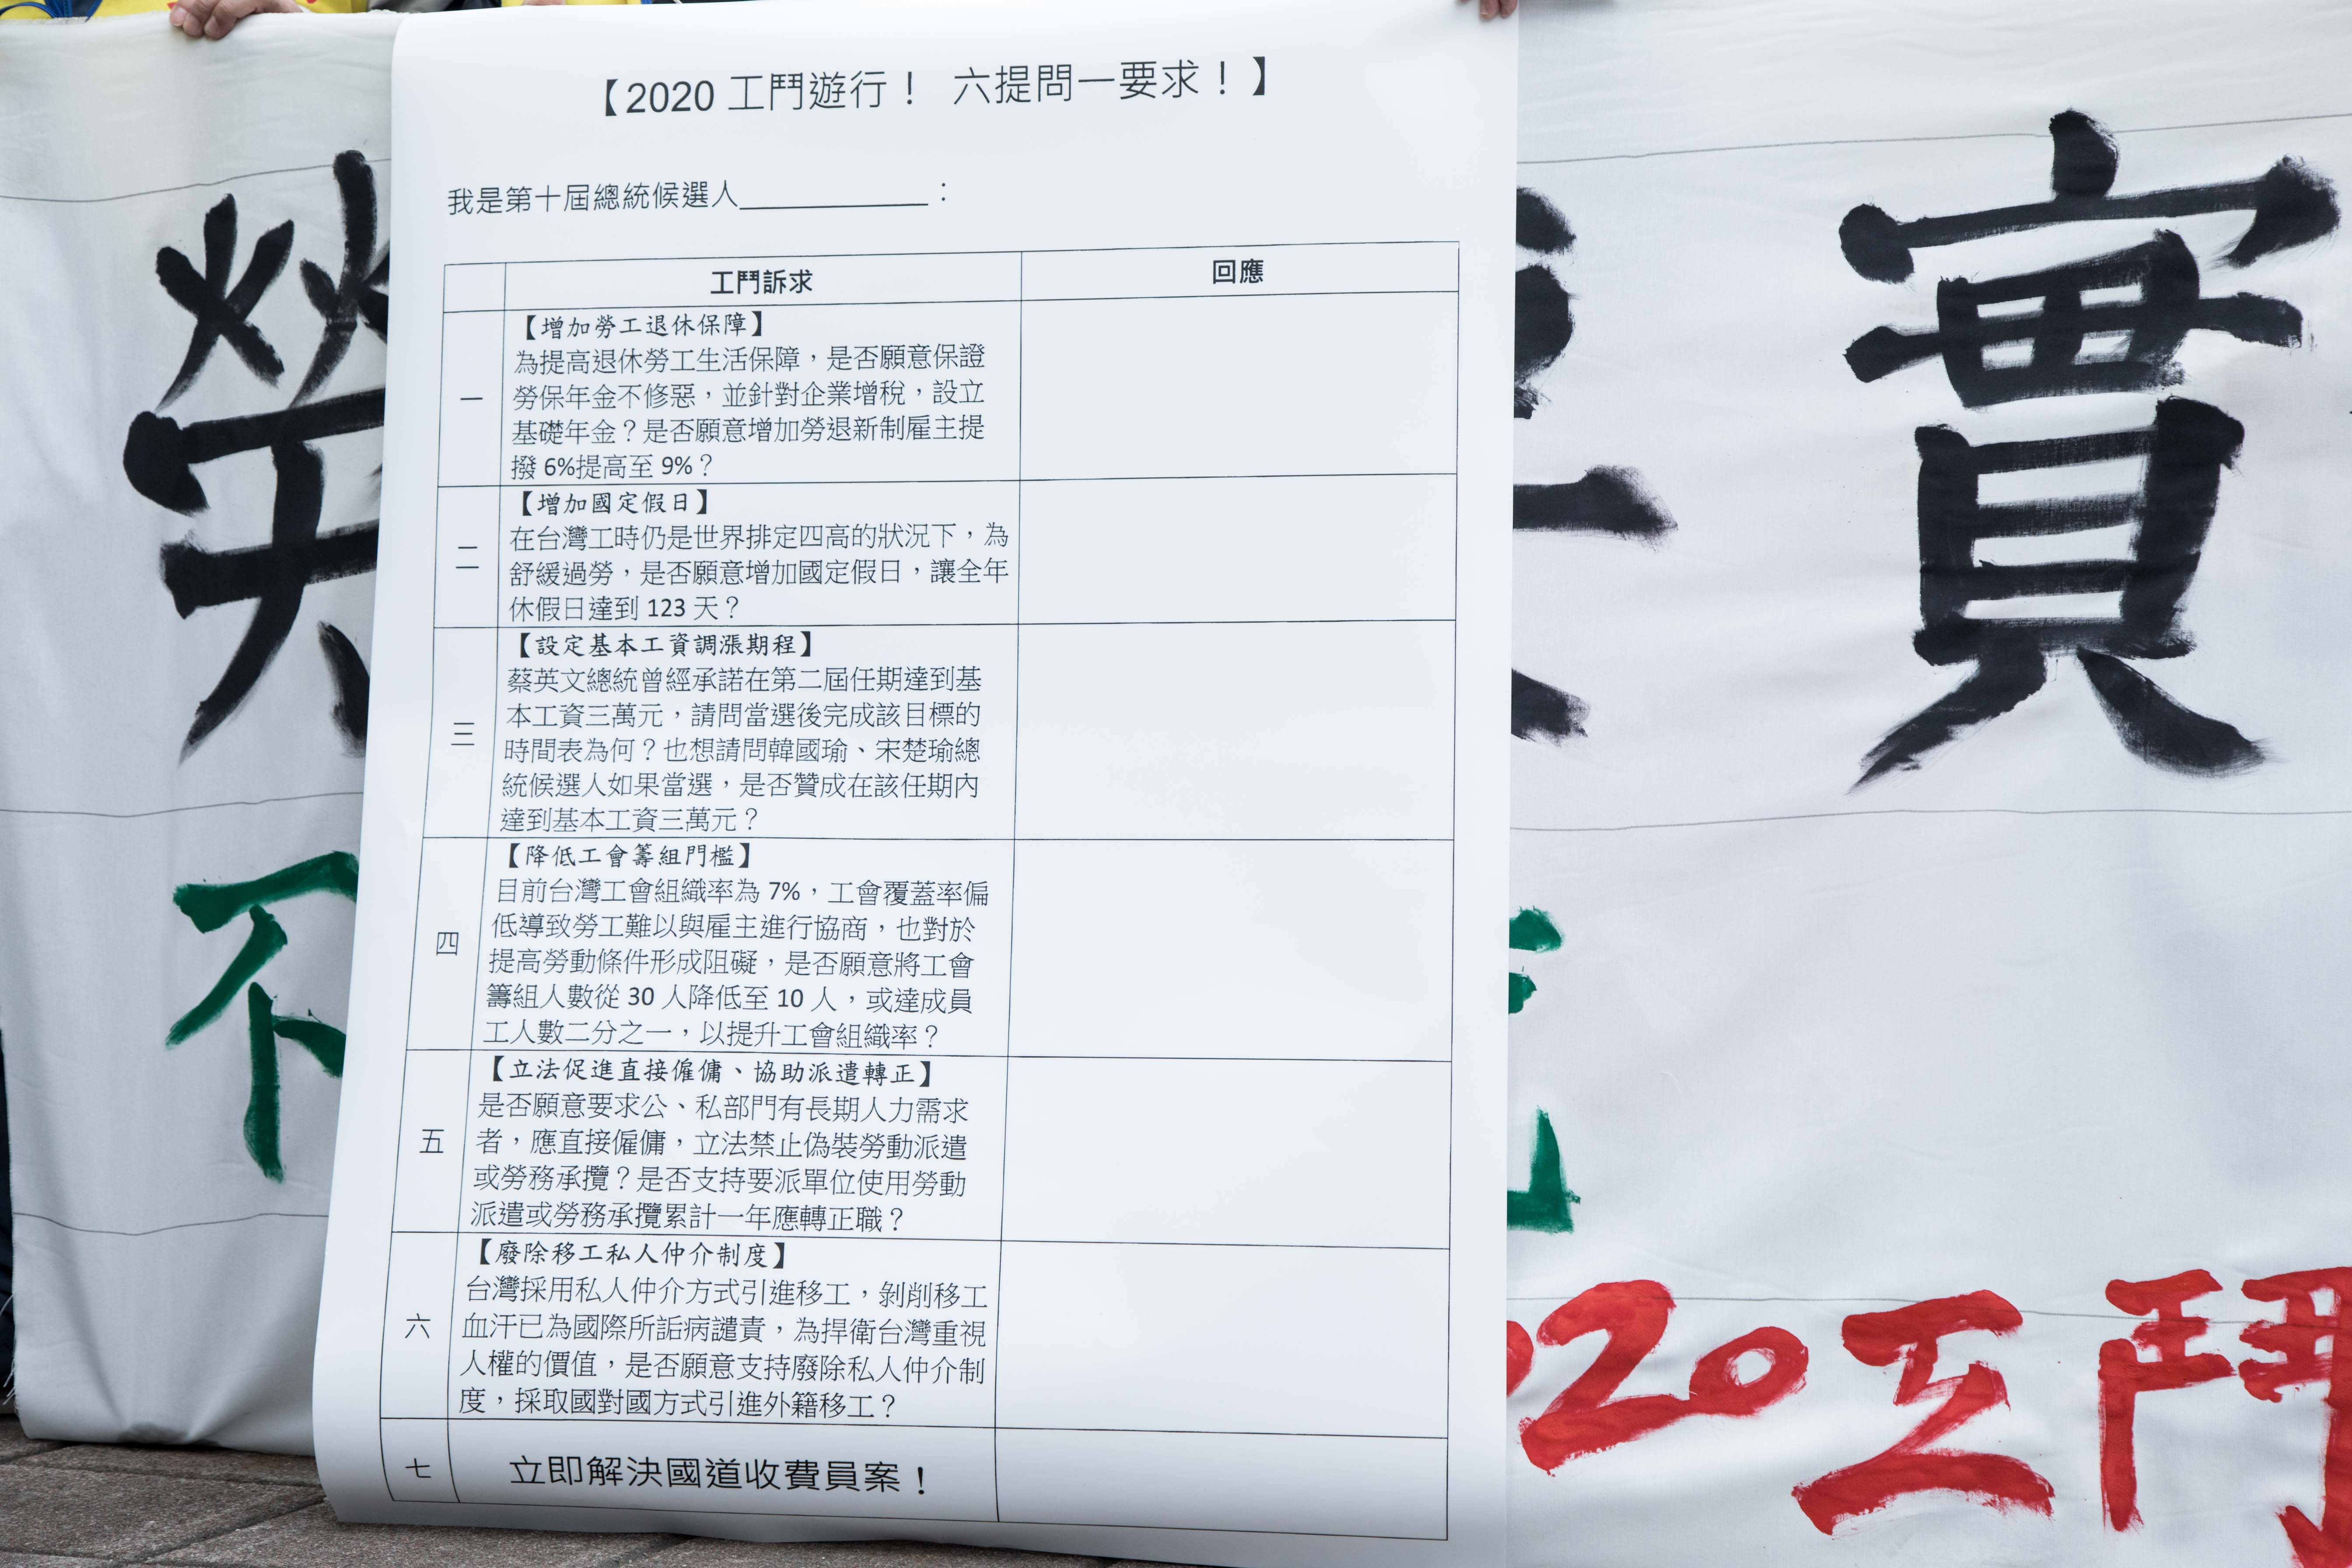 【2020 工鬥遊行！ 六提問一要求！】
我是第十屆總統候選人____________：
工鬥訴求 回應
一
【增加勞工退休保障】
為提高退休勞工生活保障，是否願意保證
勞保年金不修惡，並針對企業增稅，設立
基礎年金？是否願意增加勞退新制雇主提
撥 6%提高至 9%？
二
【增加國定假日】
在台灣工時仍是世界排定四高的狀況下，為
舒緩過勞，是否願意增加國定假日，讓全年
休假日達到 123 天？
三
【設定基本工資調漲期程】
蔡英文總統曾經承諾在第二屆任期達到基
本工資三萬元，請問當選後完成該目標的
時間表為何？也想請問韓國瑜、宋楚瑜總
統候選人如果當選，是否贊成在該任期內
達到基本工資三萬元？
四
【降低工會籌組門檻】
目前台灣工會組織率為 7%，工會覆蓋率偏
低導致勞工難以與雇主進行協商，也對於
提高勞動條件形成阻礙，是否願意將工會
籌組人數從 30 人降低至 10 人，或達成員
工人數二分之一，以提升工會組織率？
五
【立法促進直接僱傭、協助派遣轉正】
是否願意要求公、私部門有長期人力需求
者，應直接僱傭，立法禁止偽裝勞動派遣
或勞務承攬？是否支持要派單位使用勞動
派遣或勞務承攬累計一年應轉正職？
六
【廢除移工私人仲介制度】
台灣採用私人仲介方式引進移工，剝削移工
血汗已為國際所詬病譴責，為捍衛台灣重視
人權的價值，是否願意支持廢除私人仲介制
度，採取國對國方式引進外籍移工？
七
立即解決國道收費員案！
實
不
20工鬥